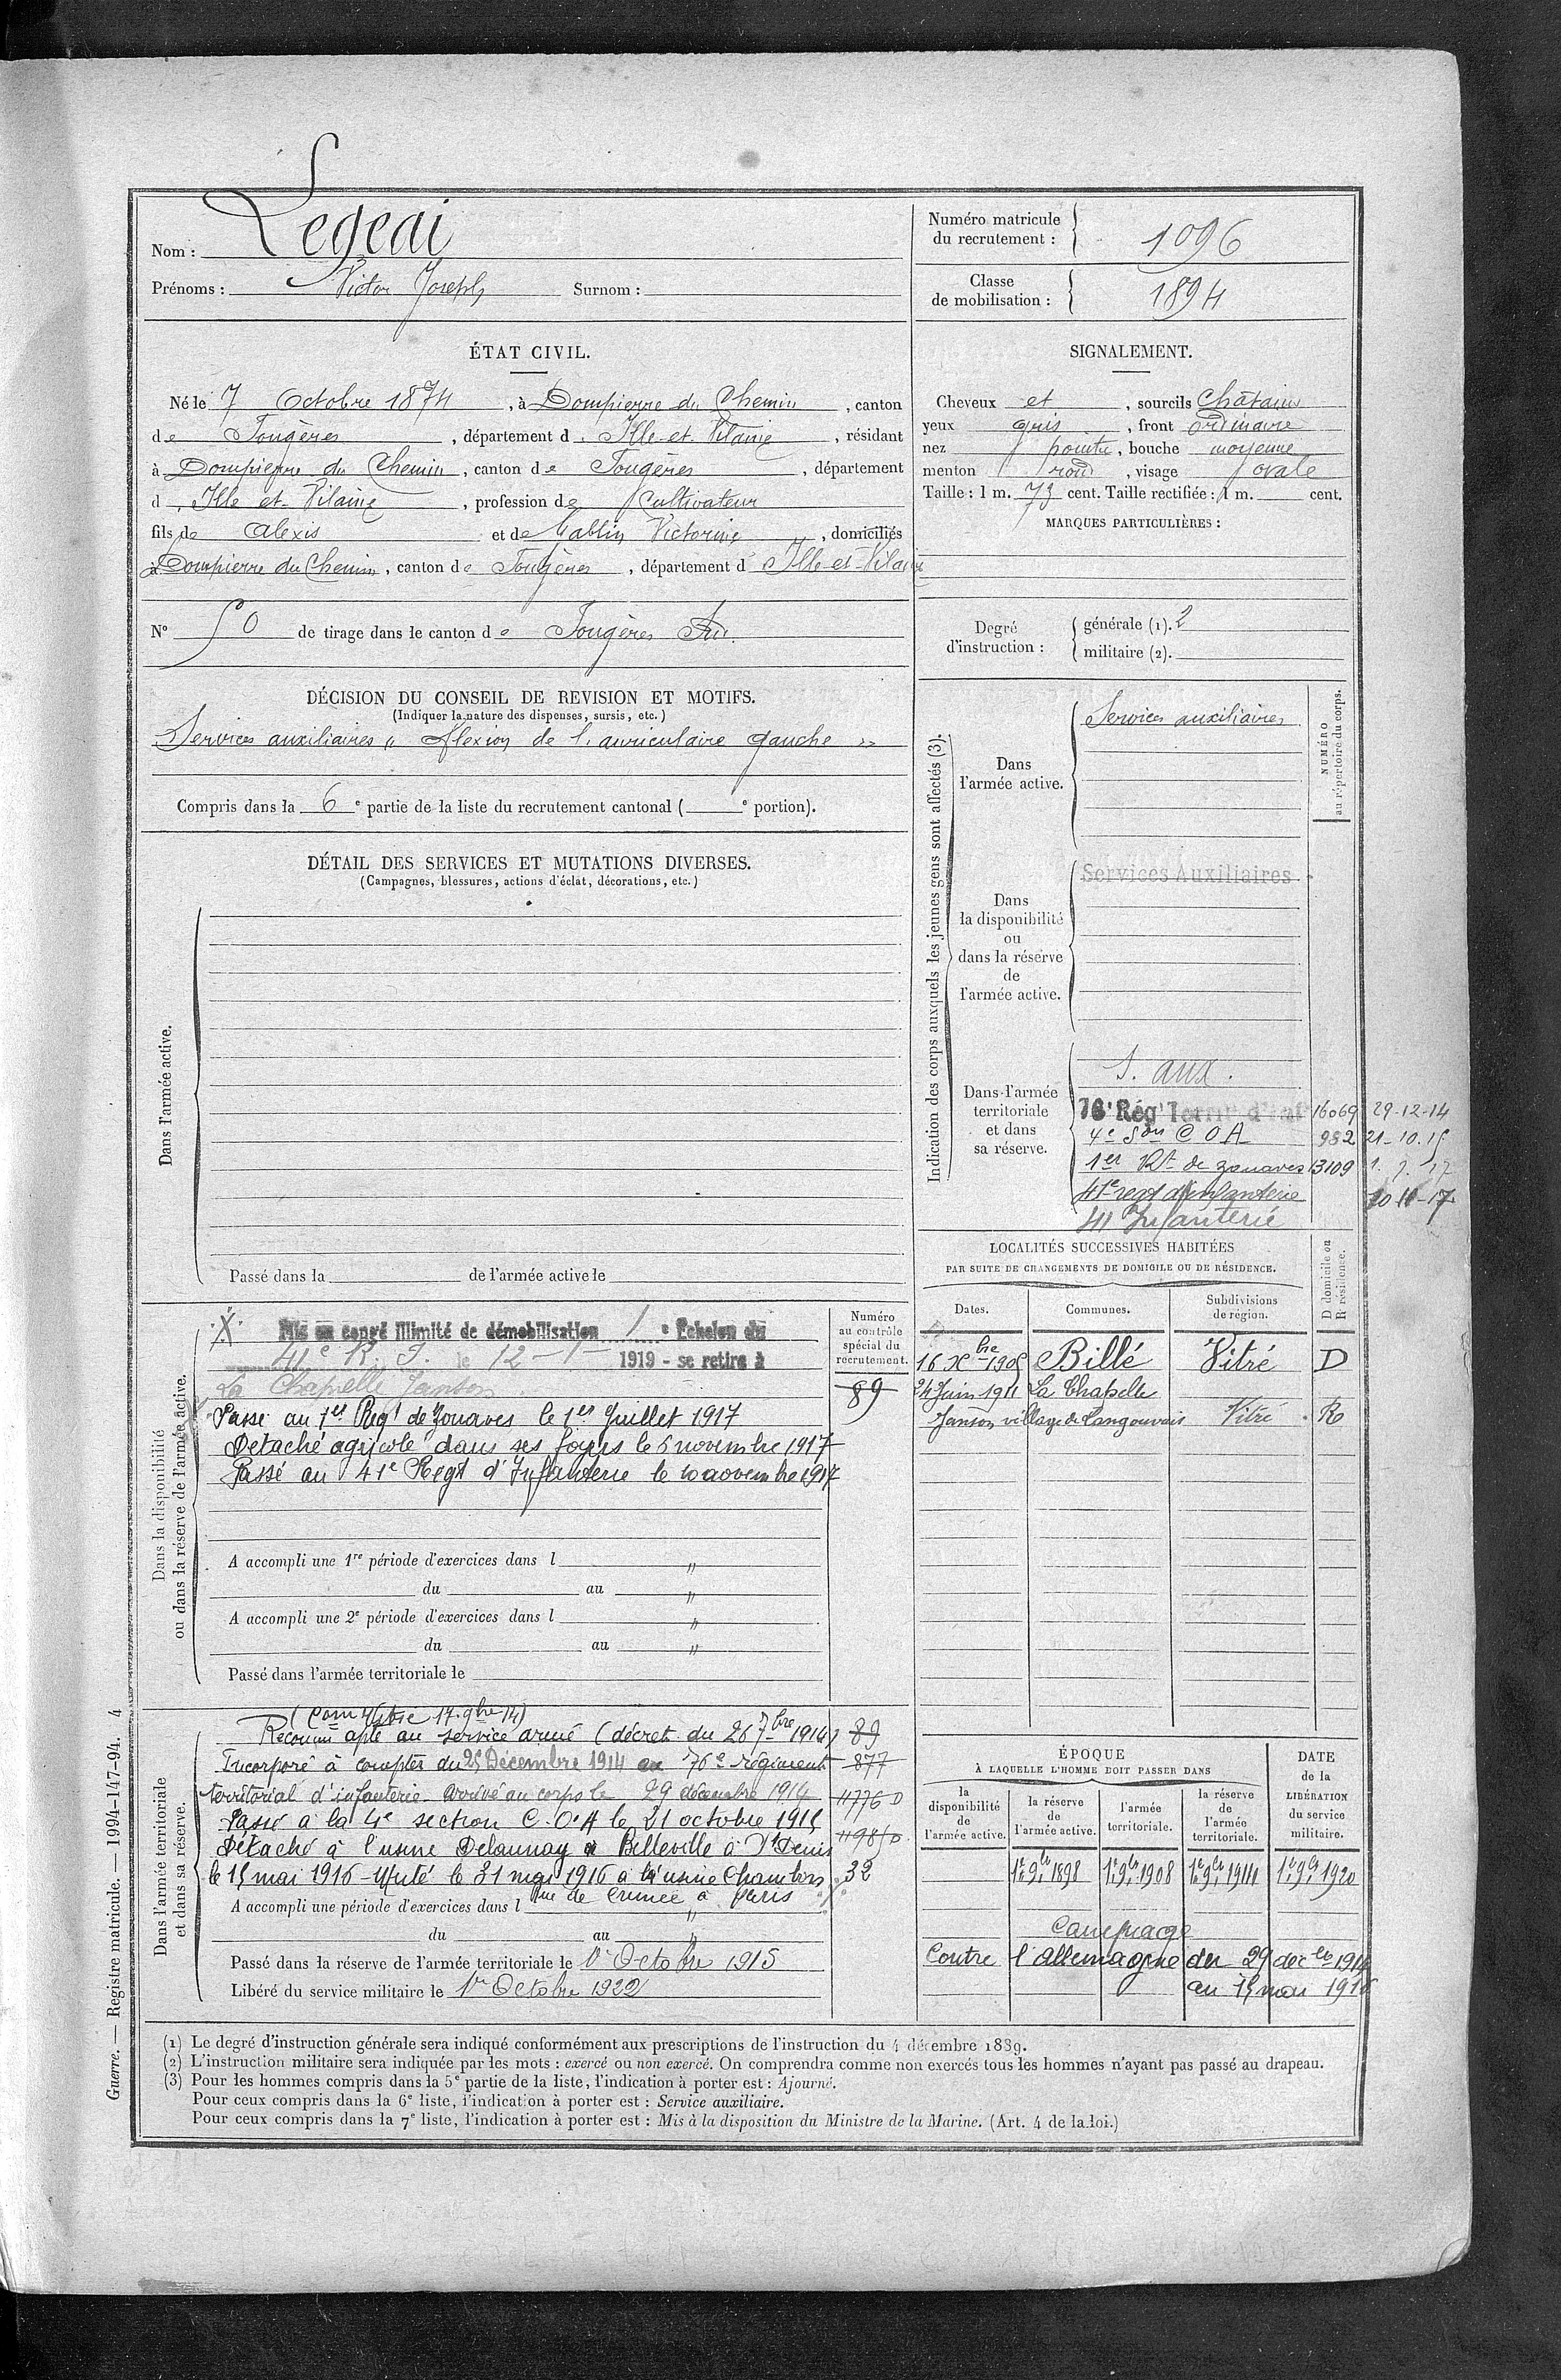 Nom : Legeai
Prénoms : Victor Joseph Surnom :
Numéro matricule du recrutement : 1096
Classe de mobilisation : 1894
ÉTAT CIVIL.
Né le 7 Octobre 1874, à Dompierre du Chemin, canton
de Fougères, département d'Ille-et-Vilaine, résidant
à Dompierre du Chemin, canton de Fougères, département
d'Ille et-Vilaine, profession de Cultivateur
fils de Alexis et de Victorine, domiciliés
à Dompierre du Chemin, canton de Fougères, département d'Ille-et-Vilaine
N° 50 de tirage dans le canton de Fougères Sud.
SIGNALEMENT.
Cheveux et, sourcils Châtains
yeux gris, front ordinaire
nez pointu, bouche moyenne
menton rond, visage ovale
Taille : 1 m. 73 cent. Taille rectifiée : 1 m. cent.
MARQUES PARTICULIÈRES :
Degré d'instruction : générale (1). 2
militaire (2).
DÉCISION DU CONSEIL DE REVISION ET MOTIFS.
(Indiquer la nature des dispenses, sursis, etc.)
Services auxiliaires " flexion de l'auriculaire gauche "
Compris dans la 6e partie de la liste du recrutement cantonal ( e portion).
DÉTAIL DES SERVICES ET MUTATIONS DIVERSES.
(Campagnes, blessures, actions d'éclat, décorations, etc.)
Dans l'armée active.
Passé dans la de l'armée active le
Indication des corps auxquels les jeunes gens sont affectés (3).
NUMÉRO
au répertoire du corps.
Dans
l'armée active.
Services auxiliaires
Dans
la disponibilité
ou
dans la réserve
de
l'armée active.
Services Auxiliaires
Dans l'armée
territoriale
et dans
sa réserve.
S. aux.
76e Rég't Territ' d'Inf 16069 29-12-14
4e Son C O A 982 21-10-15
1er Rt de zouaves 13109 1. 7. 17
41e regt d'infanterie 10-11-17
41 Infanterie
LOCALITÉS SUCCESSIVES HABITÉES
PAR SUITE DE CHANGEMENTS DE DOMICILE OU DE RÉSIDENCE.
Dates. Communes. Subdivisions de région. D domicile ou R résidence.
16 Xbre 1905 Billé Vitré D
24 Juin 1911 La Chapelle
Janson village de Vitré R
Dans la disponibilité
ou dans la réserve de l'armée active.
Numéro
au contrôle
spécial du
recrutement.
Mis en congé illimité de démobilisation 1e Echelon du
41e R. I. le 12-1-1919 - se retire à
La Chapelle Janson
89
Passé au 1er Regt de Zouaves le 1er Juillet 1917
Detaché agricole dans ses foyers le 6 novembre 1917
Passé au 41e Regt d'Infanterie le 10 novembre 1917
A accompli une 1re période d'exercices dans l "
du au "
A accompli une 2e période d'exercices dans l "
du au "
Passé dans l'armée territoriale le
Dans l'armée territoriale
et dans sa réserve.
17-9bre-14)
Reconnu apte au service armé (décret du 26 7bre 1914) 89
Incorporé à compter du 25 Décembre 1914 au 76e régiment 877
territorial d'infanterie arrivé au corps le 29 décembre 1914
Passé à la 4e section C.O.A le 21 octobre 1915
Détaché à l'usine Delaunay Belleville à St Denis
le 15 mai 1916 - Muté le 31 mai 1916 à l'usine Chambon 32
rue de Crimée à Paris
A accompli une période d'exercices dans l "
du au "
Passé dans la réserve de l'armée territoriale le 1er Octobre 1915
Libéré du service militaire le 1er Octobre 1922
ÉPOQUE
À LAQUELLE L'HOMME DOIT PASSER DANS
la disponibilité de l'armée active. la réserve de l'armée active. l'armée territoriale. la réserve de l'armée territoriale.
DATE de la LIBÉRATION du service militaire.
1er 9bre 1898 1er 9bre 1908 1er 9bre 1914 1er 9bre 1920
Campagne
Contre l'Allemagne du 29 décbre 1914
au 15 mai 1916
(1) Le degré d'instruction générale sera indiqué conformément aux prescriptions de l'instruction du 4 décembre 1889.
(2) L'instruction militaire sera indiquée par les mots : exercé ou non exercé. On comprendra comme non exercés tous les hommes n'ayant pas passé au drapeau.
(3) Pour les hommes compris dans la 5e partie de la liste, l'indication à porter est : Ajourné.
Pour ceux compris dans la 6e liste, l'indication à porter est : Service auxiliaire.
Pour ceux compris dans la 7e liste, l'indication à porter est : Mis à la disposition du Ministre de la Marine. (Art. 4 de la loi.)
Guerre. — Registre matricule. — 1994-147-94. 4